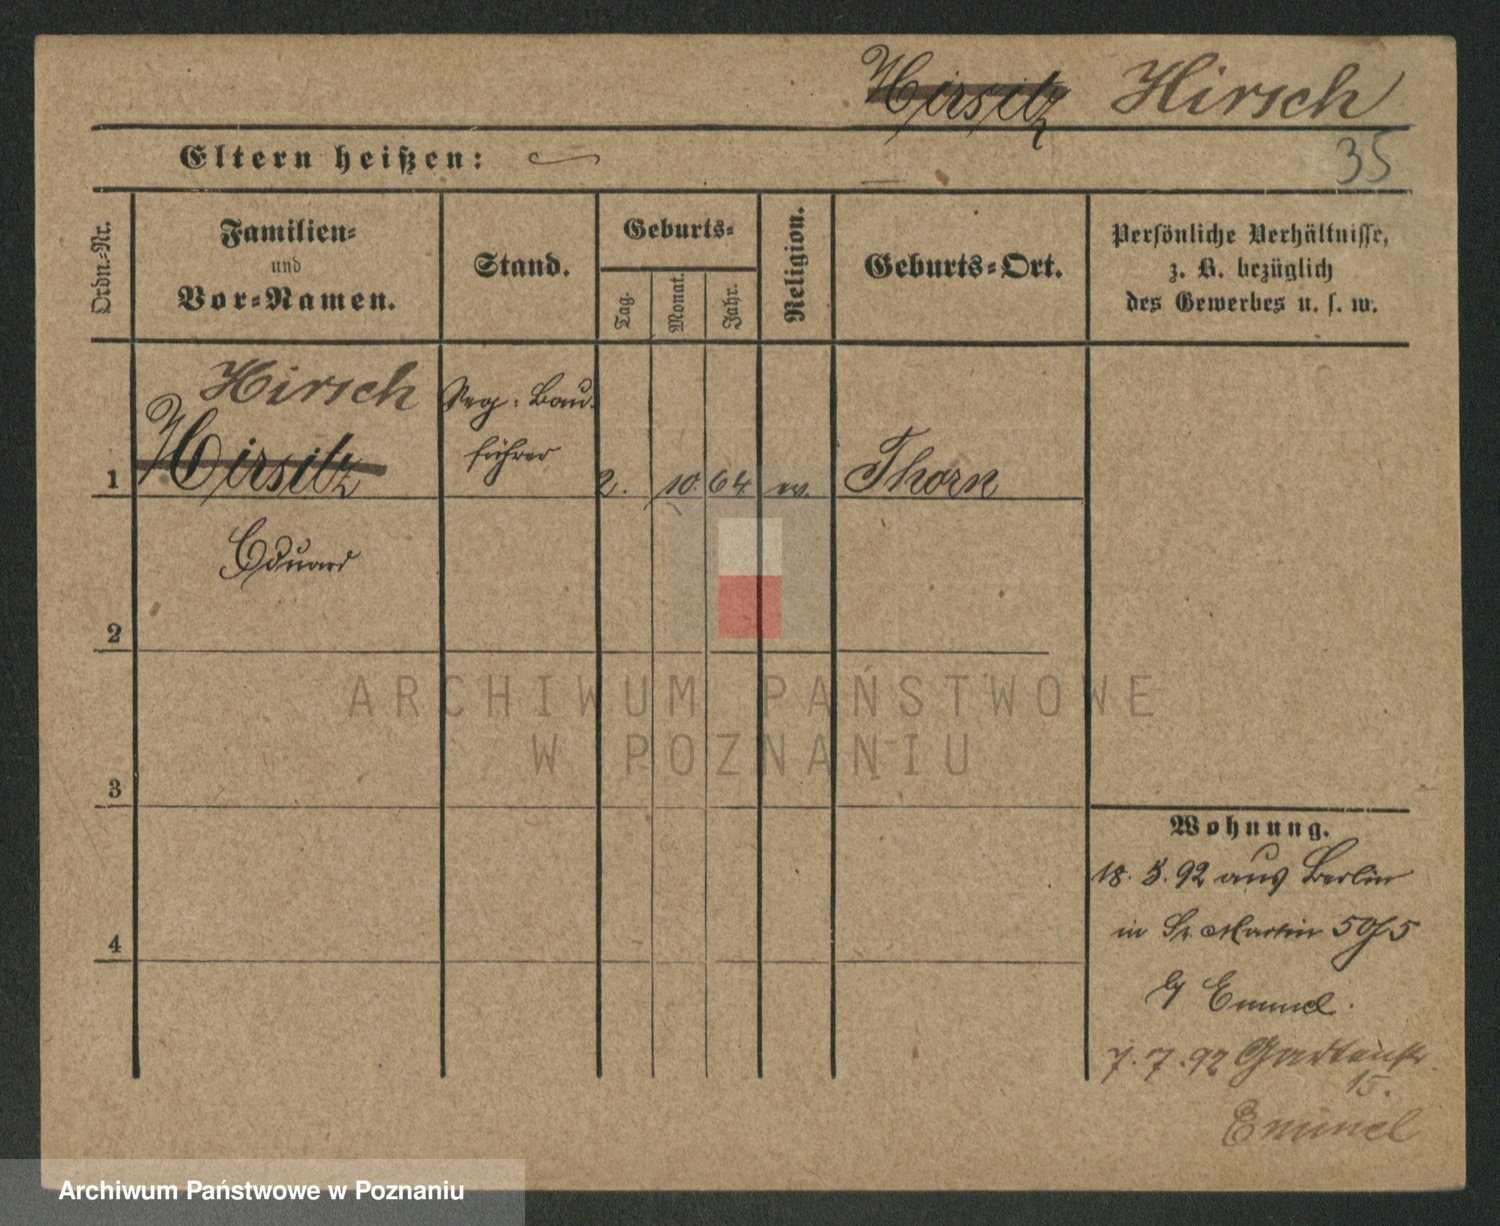 Hirsitz Hirsch
Eltern heißen:
35
Ordn.-Nr.
Familien-
und
Vor-Namen.
Stand.
Geburts-
Tag.
Monat.
Jahr.
Religion.
Geburts-Ort.
Persönliche Verhältnisse,
z. B. bezüglich
des Gewerbes u. s. w.
Hirsch
Reg. Bau-
führer
1 Hirsitz 2. 10. 64 ev. Thorn
Eduard
2
3
4
ARCHIWUM PAŃSTWOWE
W POZNANIU
Wohnung.
18. 5. 92 aus Berlin
in St. Martin 50/5
b/
7. 7. 92 Gartenstr.
15.
Archiwum Państwowe w Poznaniu